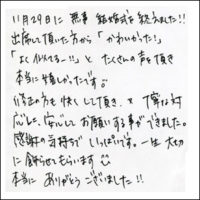 11月29日に 無事 結婚式を終えました!!
出席して頂いた方から「かわいかった!」
「よく似てるー!!」と たくさんの声を頂き
本当に嬉しかったです。
修正の方も快くして頂き、丁寧な対
応に、安心して お願いする事ができました。
感謝の気持ちで いっぱいです。一生 大切
に飾らせてもらいます
本当に ありがとう ございました!!